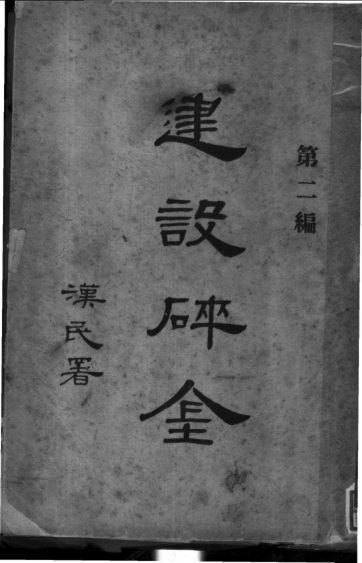 第二編
建設碎金
漢民署